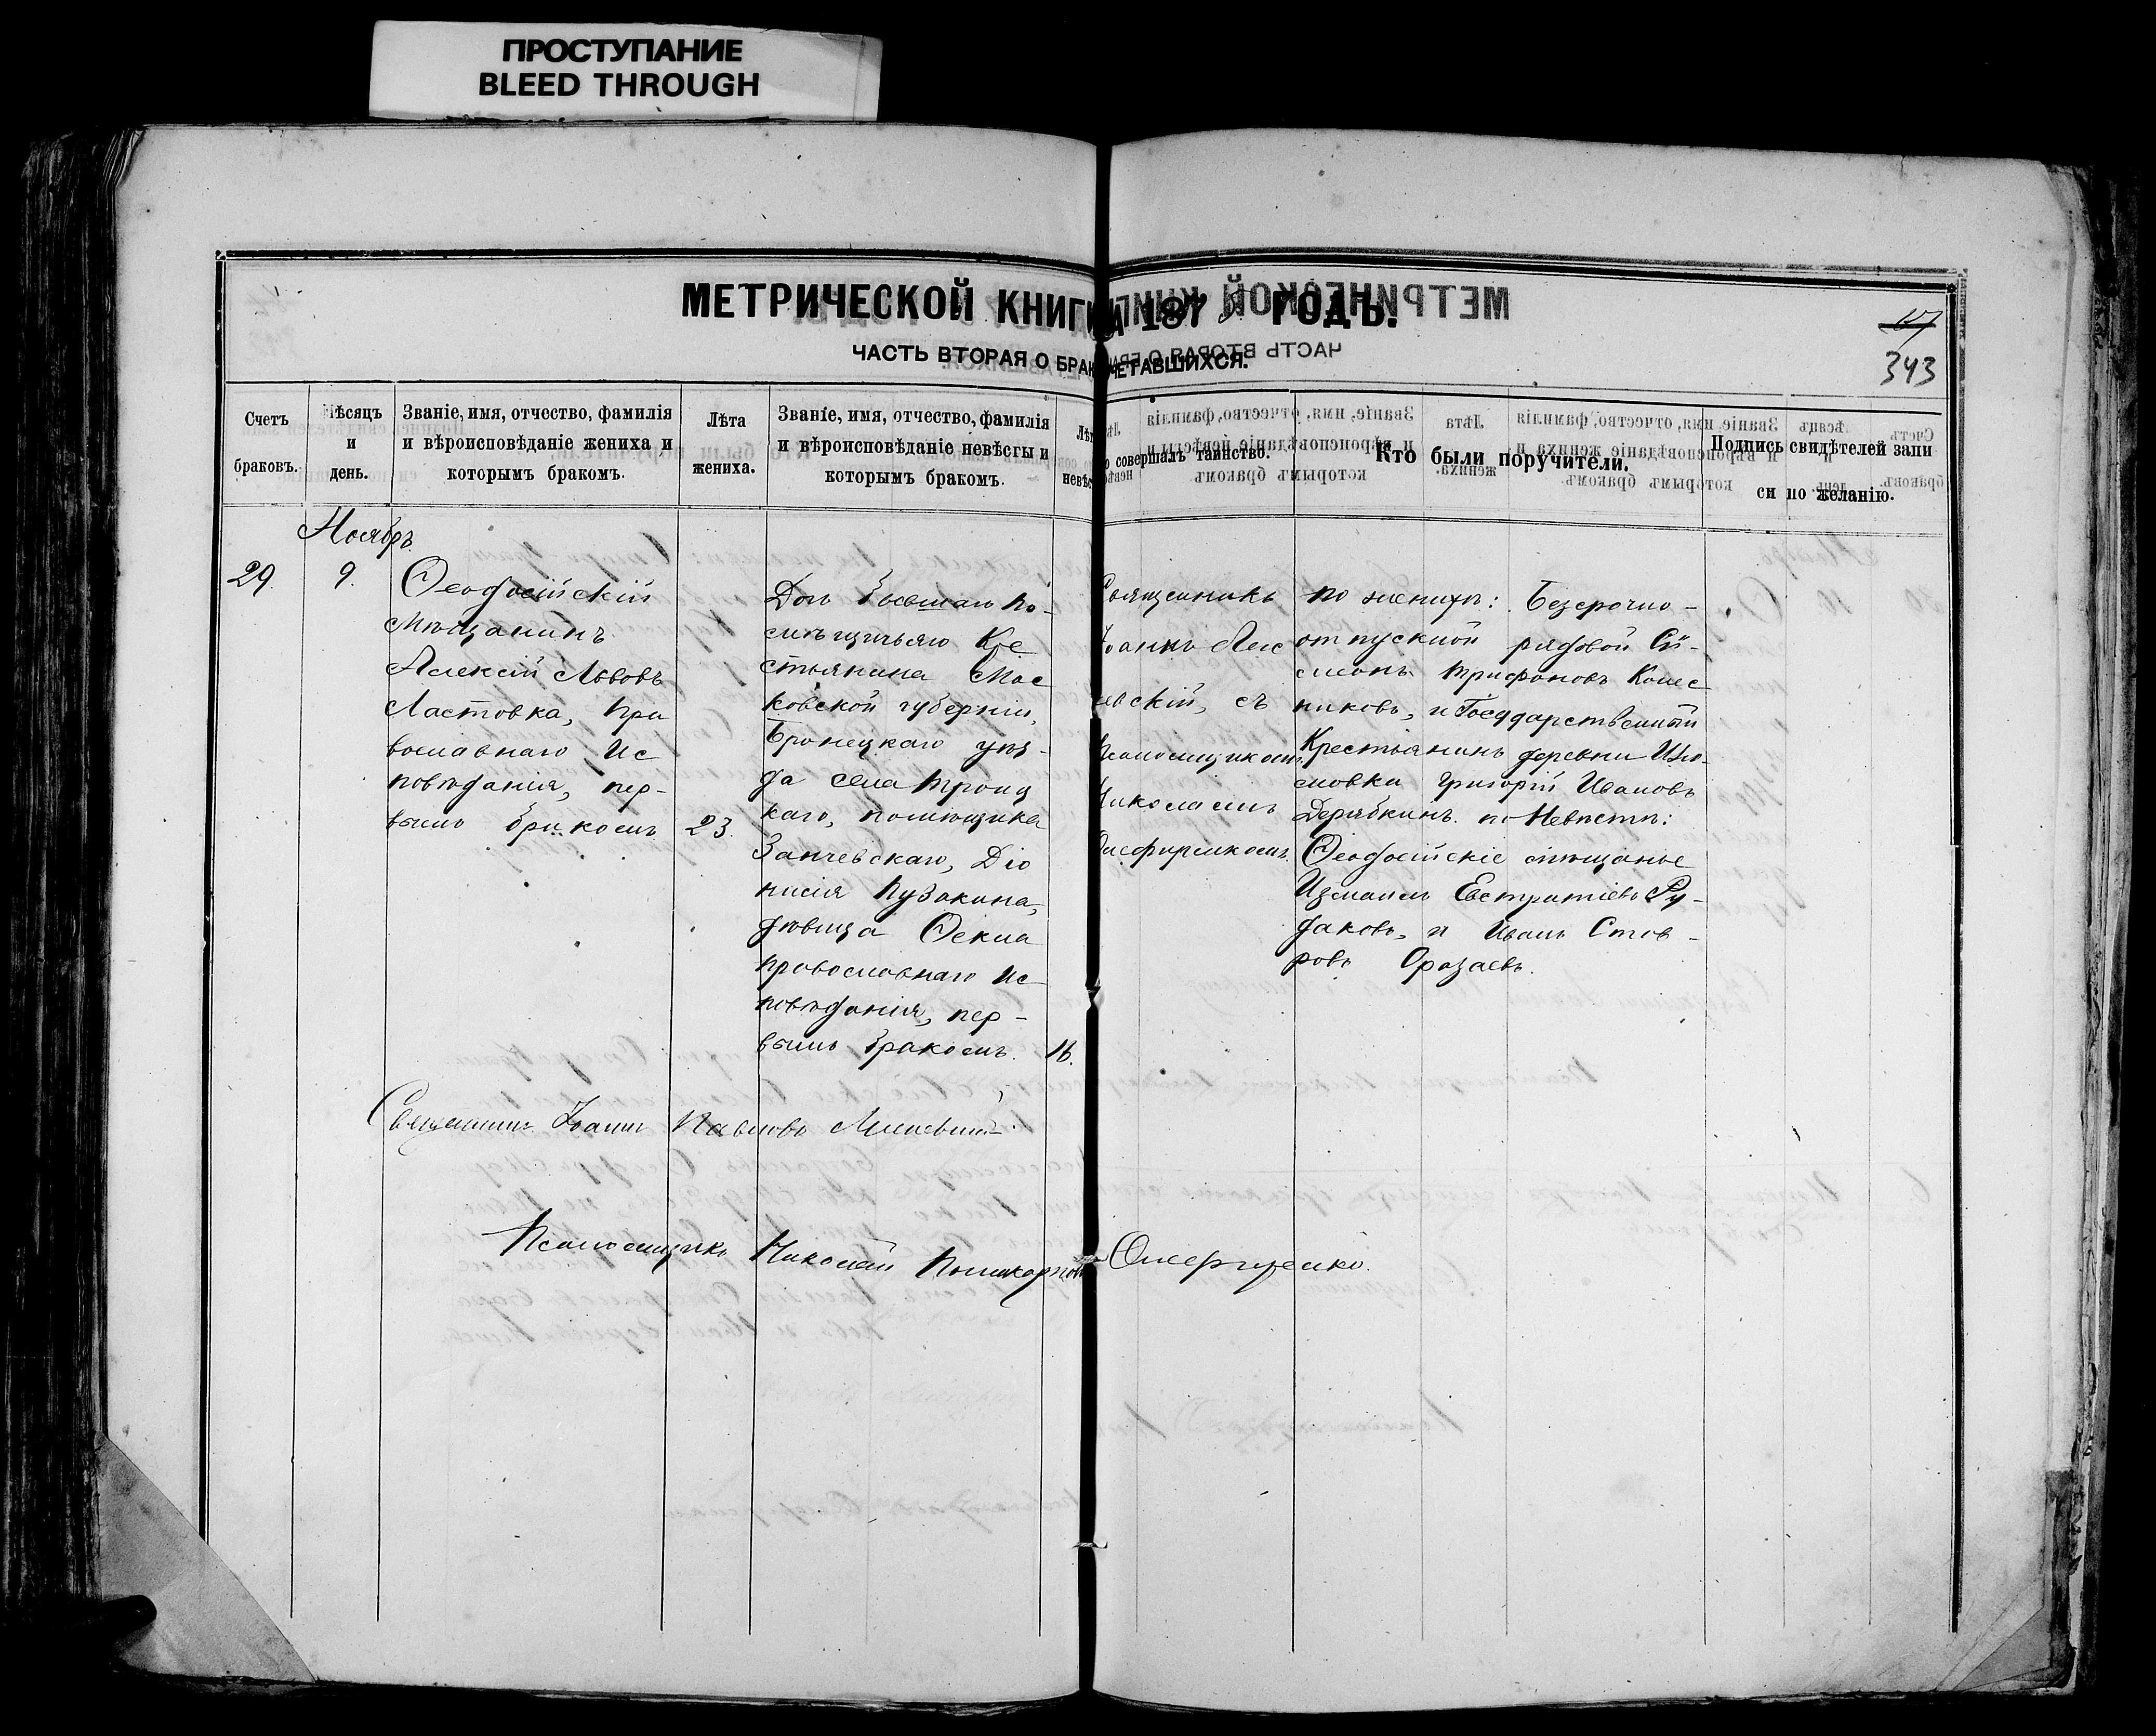 ПРОСТУПАНИЕ
BLEED THROUGH
МЕТРИЧЕСКОЙ КНИГИ
НА 187 ГОДЪ.
ЧАСТЬ ВТОРАЯ О БРАКО
СОЧЕТАВШИХСЯ.
343
Счетъ
браковъ.
Мѣсяцъ
и
день.
Званіе, имя, отчество, фамилія
и вѣроисповѣданіе жениха и
которымъ бракомъ.
Лѣта
жениха.
Званіе, имя, отчество, фамилія
и вѣроисповѣданіе невѣсты и
которымъ бракомъ.
Лѣт
невѣс
о совершалъ таинство.
Кто были поручители.
Подпись свидѣтелей запи
си по желанію.
Ноябрь
29.
9.
Ѳеодосійскій
Мѣщанинъ
Алексій Львовъ
Ластовка, Пра
вославнаго Ис
повѣданія, пер-
вымъ бракомъ
23.
Дочь бывшаго По-
мѣщичьяго Кре
стьянина Мос
ковской губерніи,
Бронецкаго уѣз-
да села Троиц
каго, помѣщика
Діо
нисія Пузакина,
дѣвица Ѳекла
православнаго Ис-
повѣданія, пер-
вымъ бракомъ.
16.
Священникъ
Іоаннъ
скій, съ
Псаломщикомъ
Николаемъ
по женихѣ: Безсрочно-
отпускной рядовой Си-
меонъ Трифоновъ Колес-
никовъ, и Государственный
Крестьянинъ деревни
мовки Григорій Ивановъ
Дерябкинъ. по Невѣстѣ:
Ѳеодосійскіе мѣщане
Измаилъ Евстратіевъ Ру-
даковъ, и Иванъ
ровъ
Священникъ Іоаннъ Павловъ
Псаломщикъ Николай Поликарповъ